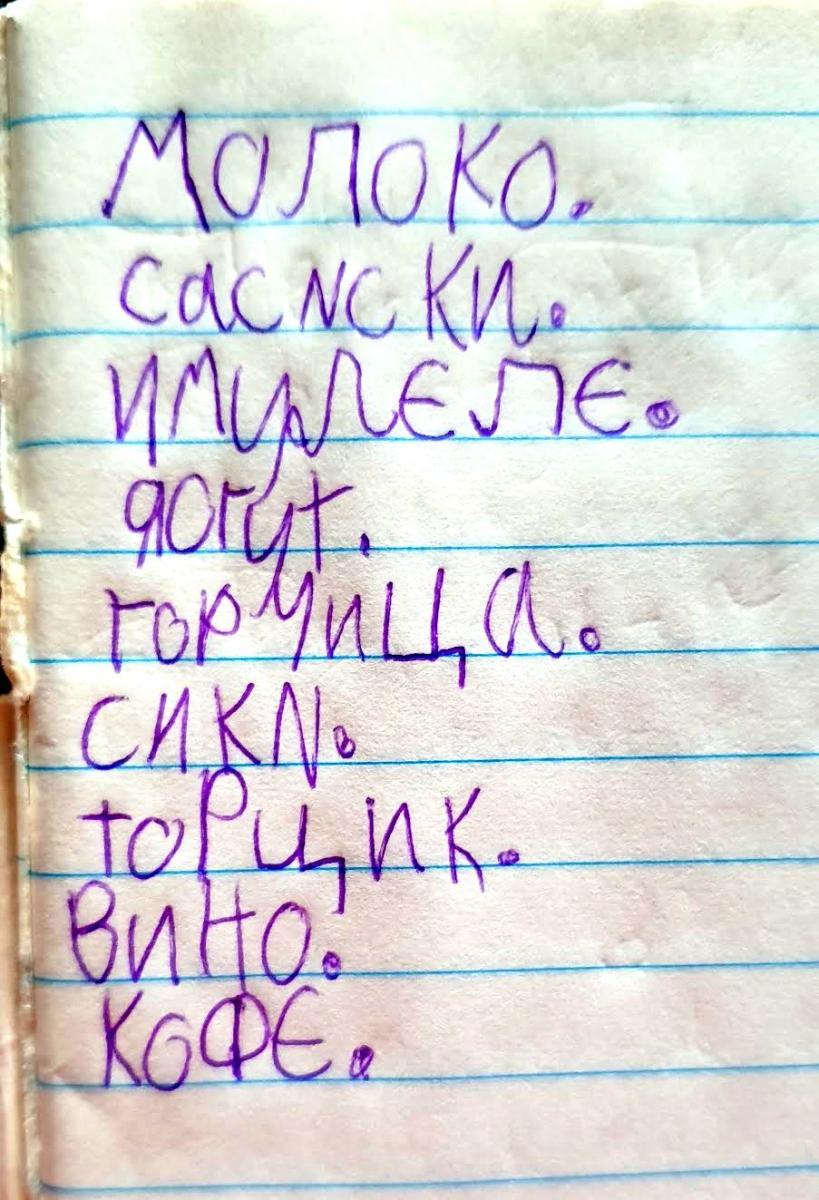 Молоко.
саски.
имулеле.
яогут.
горчица.
сики.
торщик.
вино.
кофе.